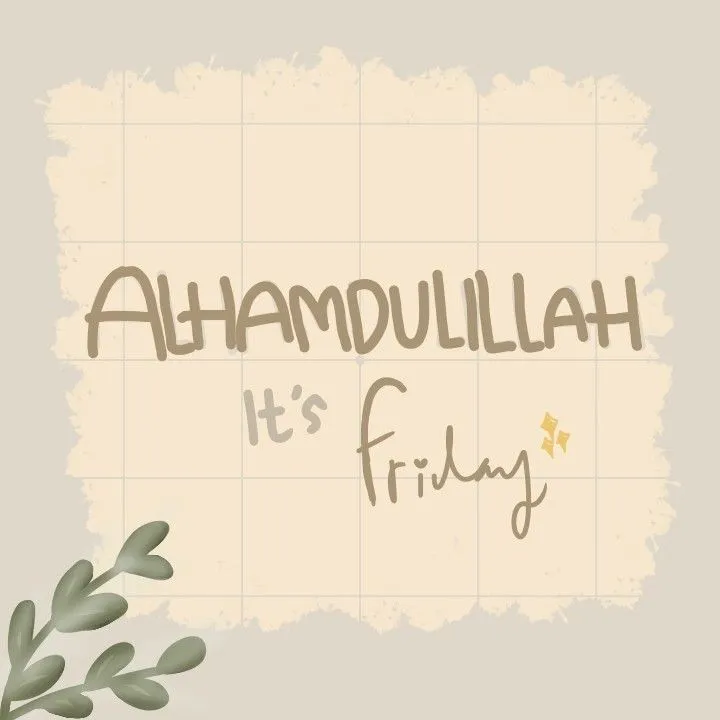 ALHAMDULILLAH
It's Friday